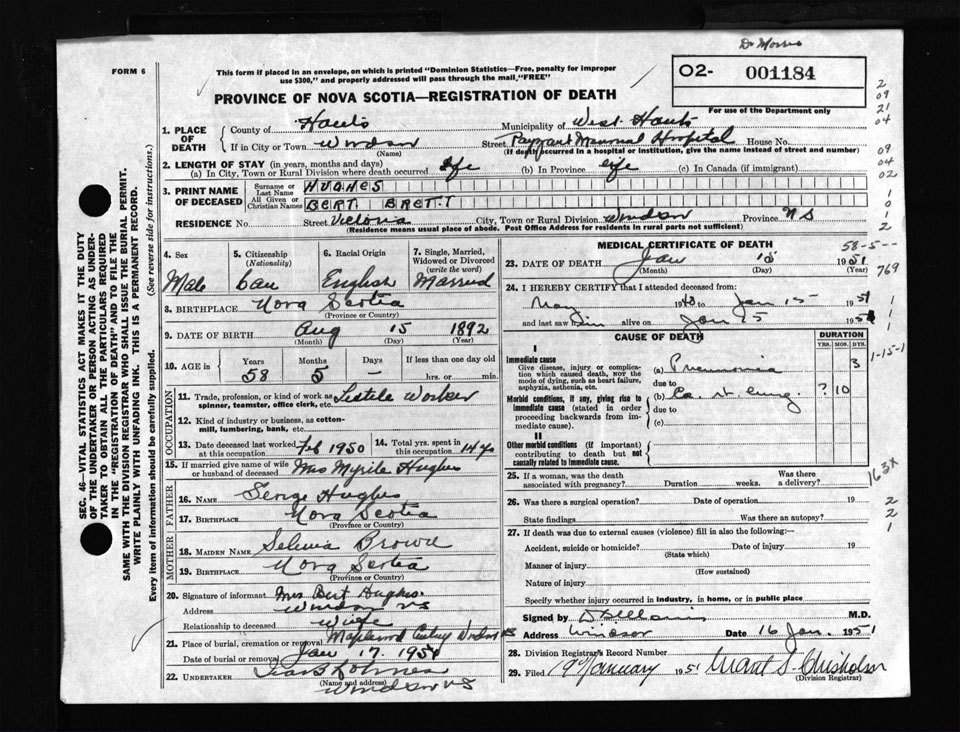 Dr Morris
FORM 6
This form if placed in an envelope, on which is printed "Dominion Statistics—Free, penalty for improper
use $300," and properly addressed will pass through the mail, "FREE"
O2- 001184
For use of the Department only
PROVINCE OF NOVA SCOTIA—REGISTRATION OF DEATH
2
09
21
04
09
04
02
1
0
1
2
1. PLACE OF DEATH
County of Hants Municipality of West Hants
If in City or Town Windsor Street Payzant Memorial Hospital House No.
(Name) (If death occurred in a hospital or institution, give the name instead of street and number)
2. LENGTH OF STAY (in years, months and days)
(a) In City, Town or Rural Division where death occurred life (b) In Province life (c) In Canada (if immigrant)
3. PRINT NAME OF DECEASED
Surname or Last Name HUGHES
All Given or Christian Names BERT BRETT
RESIDENCE No. Street Victoria City, Town or Rural Division Windsor Province NS
(Residence means usual place of abode. Post Office Address for Residents in rural parts not sufficient)
4. Sex
Male
5. Citizenship (Nationality)
Can
6. Racial Origin
English
7. Single, Married, Widowed or Divorced (write the word)
Married
8. BIRTHPLACE Nova Scotia
(Province or Country)
9. DATE OF BIRTH Aug 15 1892
(Month) (Day) (Year)
10. AGE in Years Months Days If less than one day old
58 5 — hrs. or min.
OCCUPATION
11. Trade, profession, or kind of work as spinner, teamster, office clerk, etc. Textile Worker
12. Kind of industry or business, as cotton-mill, lumbering, bank, etc.
13. Date deceased last worked at this occupation Feb 1950
14. Total yrs. spent in this occupation 14 yrs
15. If married give name of wife or husband of deceased Mrs Myrtle Hughes
FATHER
16. Name George Hughes
17. Birthplace Nova Scotia
(Province or Country)
MOTHER
18. MAIDEN NAME Selena Brown
19. BIRTHPLACE Nova Scotia
(Province or Country)
20. Signature of informant Mrs Bert Hughes
Address Windsor NS
Relationship to deceased Wife
21. Place of burial, cremation or removal Maplewood Cem'y Windsor NS
Date of burial or removal Jan 17, 1951
22. UNDERTAKER
(Name and address)
Windsor NS
MEDICAL CERTIFICATE OF DEATH
58-5--
23. DATE OF DEATH Jan 15 1951
(Month) (Day) (Year)
769
24. I HEREBY CERTIFY that I attended deceased from:
May to Jan 15 1951
and last saw him alive on Jan 15 1951
1
1
1
CAUSE OF DEATH
DURATION
YRS. MOS. DYS.
1-15-1
I
Immediate cause
Give disease, injury or complication which caused death, NOT the mode of dying, such as heart failure, asphyxia, asthenia, etc.
(a) Pneumonia 3
due to
Morbid conditions, if any, giving rise to immediate cause (stated in order proceeding backwards from immediate cause).
(b) Ca. rt. lung. ? 10
due to
(c)
II
Other morbid conditions (if important) contributing to death but not causally related to immediate cause.
163X
25. If a woman, was the death associated with pregnancy? Duration weeks. Was there a delivery?
26. Was there a surgical operation? Date of operation 19
State findings Was there an autopsy?
2
2
1
27. If death was due to external causes (violence) fill in also the following:—
Accident, suicide or homicide? Date of injury 19
(State which)
Manner of injury
(How sustained)
Nature of injury
Specify whether injury occurred in industry, in home, or in public place
Signed by M.D.
Address Windsor Date 16 Jan. 1951
28. Division Registrar's Record Number
29. Filed 19 January 1951 Chisholm
(Division Registrar)
SEC. 46—VITAL STATISTICS ACT MAKES IT THE DUTY
OF THE UNDERTAKER OR PERSON ACTING AS UNDER-
TAKER TO OBTAIN ALL THE PARTICULARS REQUIRED
IN THE "REGISTRATION OF DEATH" AND TO FILE THE
SAME WITH THE DIVISION REGISTRAR WHO SHALL ISSUE THE BURIAL PERMIT.
WRITE PLAINLY WITH UNFADING INK. THIS IS A PERMANENT RECORD.
Every item of information should be carefully supplied. (See reverse side for instructions.)